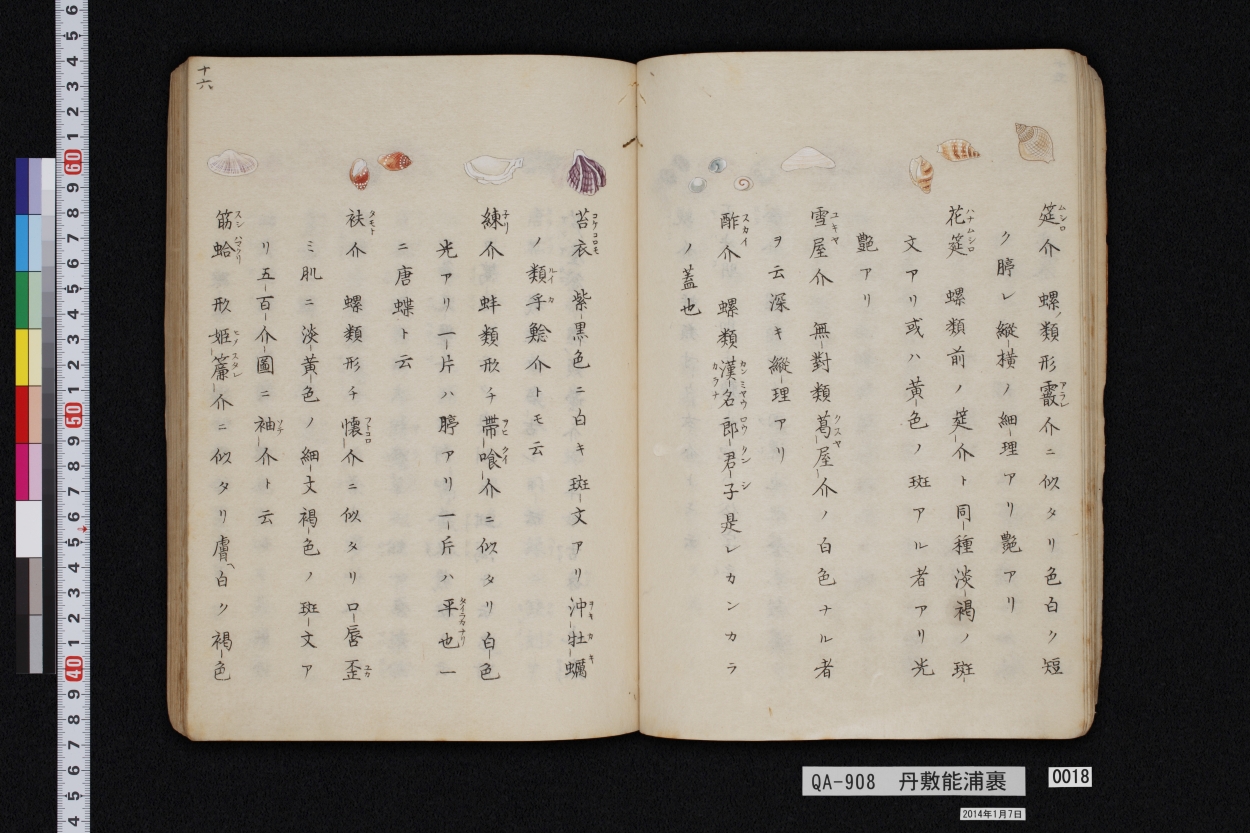 筵介　螺類形霰介ニ似タリ色白ク短
ク脝レ縱横ノ細理アリ艶アリ
花筵　螺類前ノ筵介ト同種淡褐ノ斑
文アリ或ハ黄色ノ斑アル者アリ光
艶アリ
雪屋介　無對類葛屋介ノ白色ナル者
ヲ云深キ縱理アリ
酢介　螺類漢名郎君子是レカンカラ
ノ蓋也
苔衣　紫黒色ニ白キ斑文アリ沖牡蠣
ノ類乎鯰介トモ云
練介　蚌類形チ帶喰介ニ似タリ白色
光アリ一片ハ脝アリ一斤ハ平也一
ニ唐蝶ト云
袂介　螺類形チ懷介ニ似タリ口唇歪
ミ肌ニ淡黄色ノ細文褐色ノ斑文ア
リ五百介圖ニ袖介ト云
筋蛤　形姫簾介ニ似タリ膚白ク褐色
十六
QA-908　丹敷能浦裹
0018
2014年1月7日